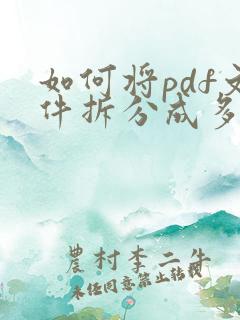 如何将pdf文
件拆分成多
農村李二牛
未经同意禁止转载